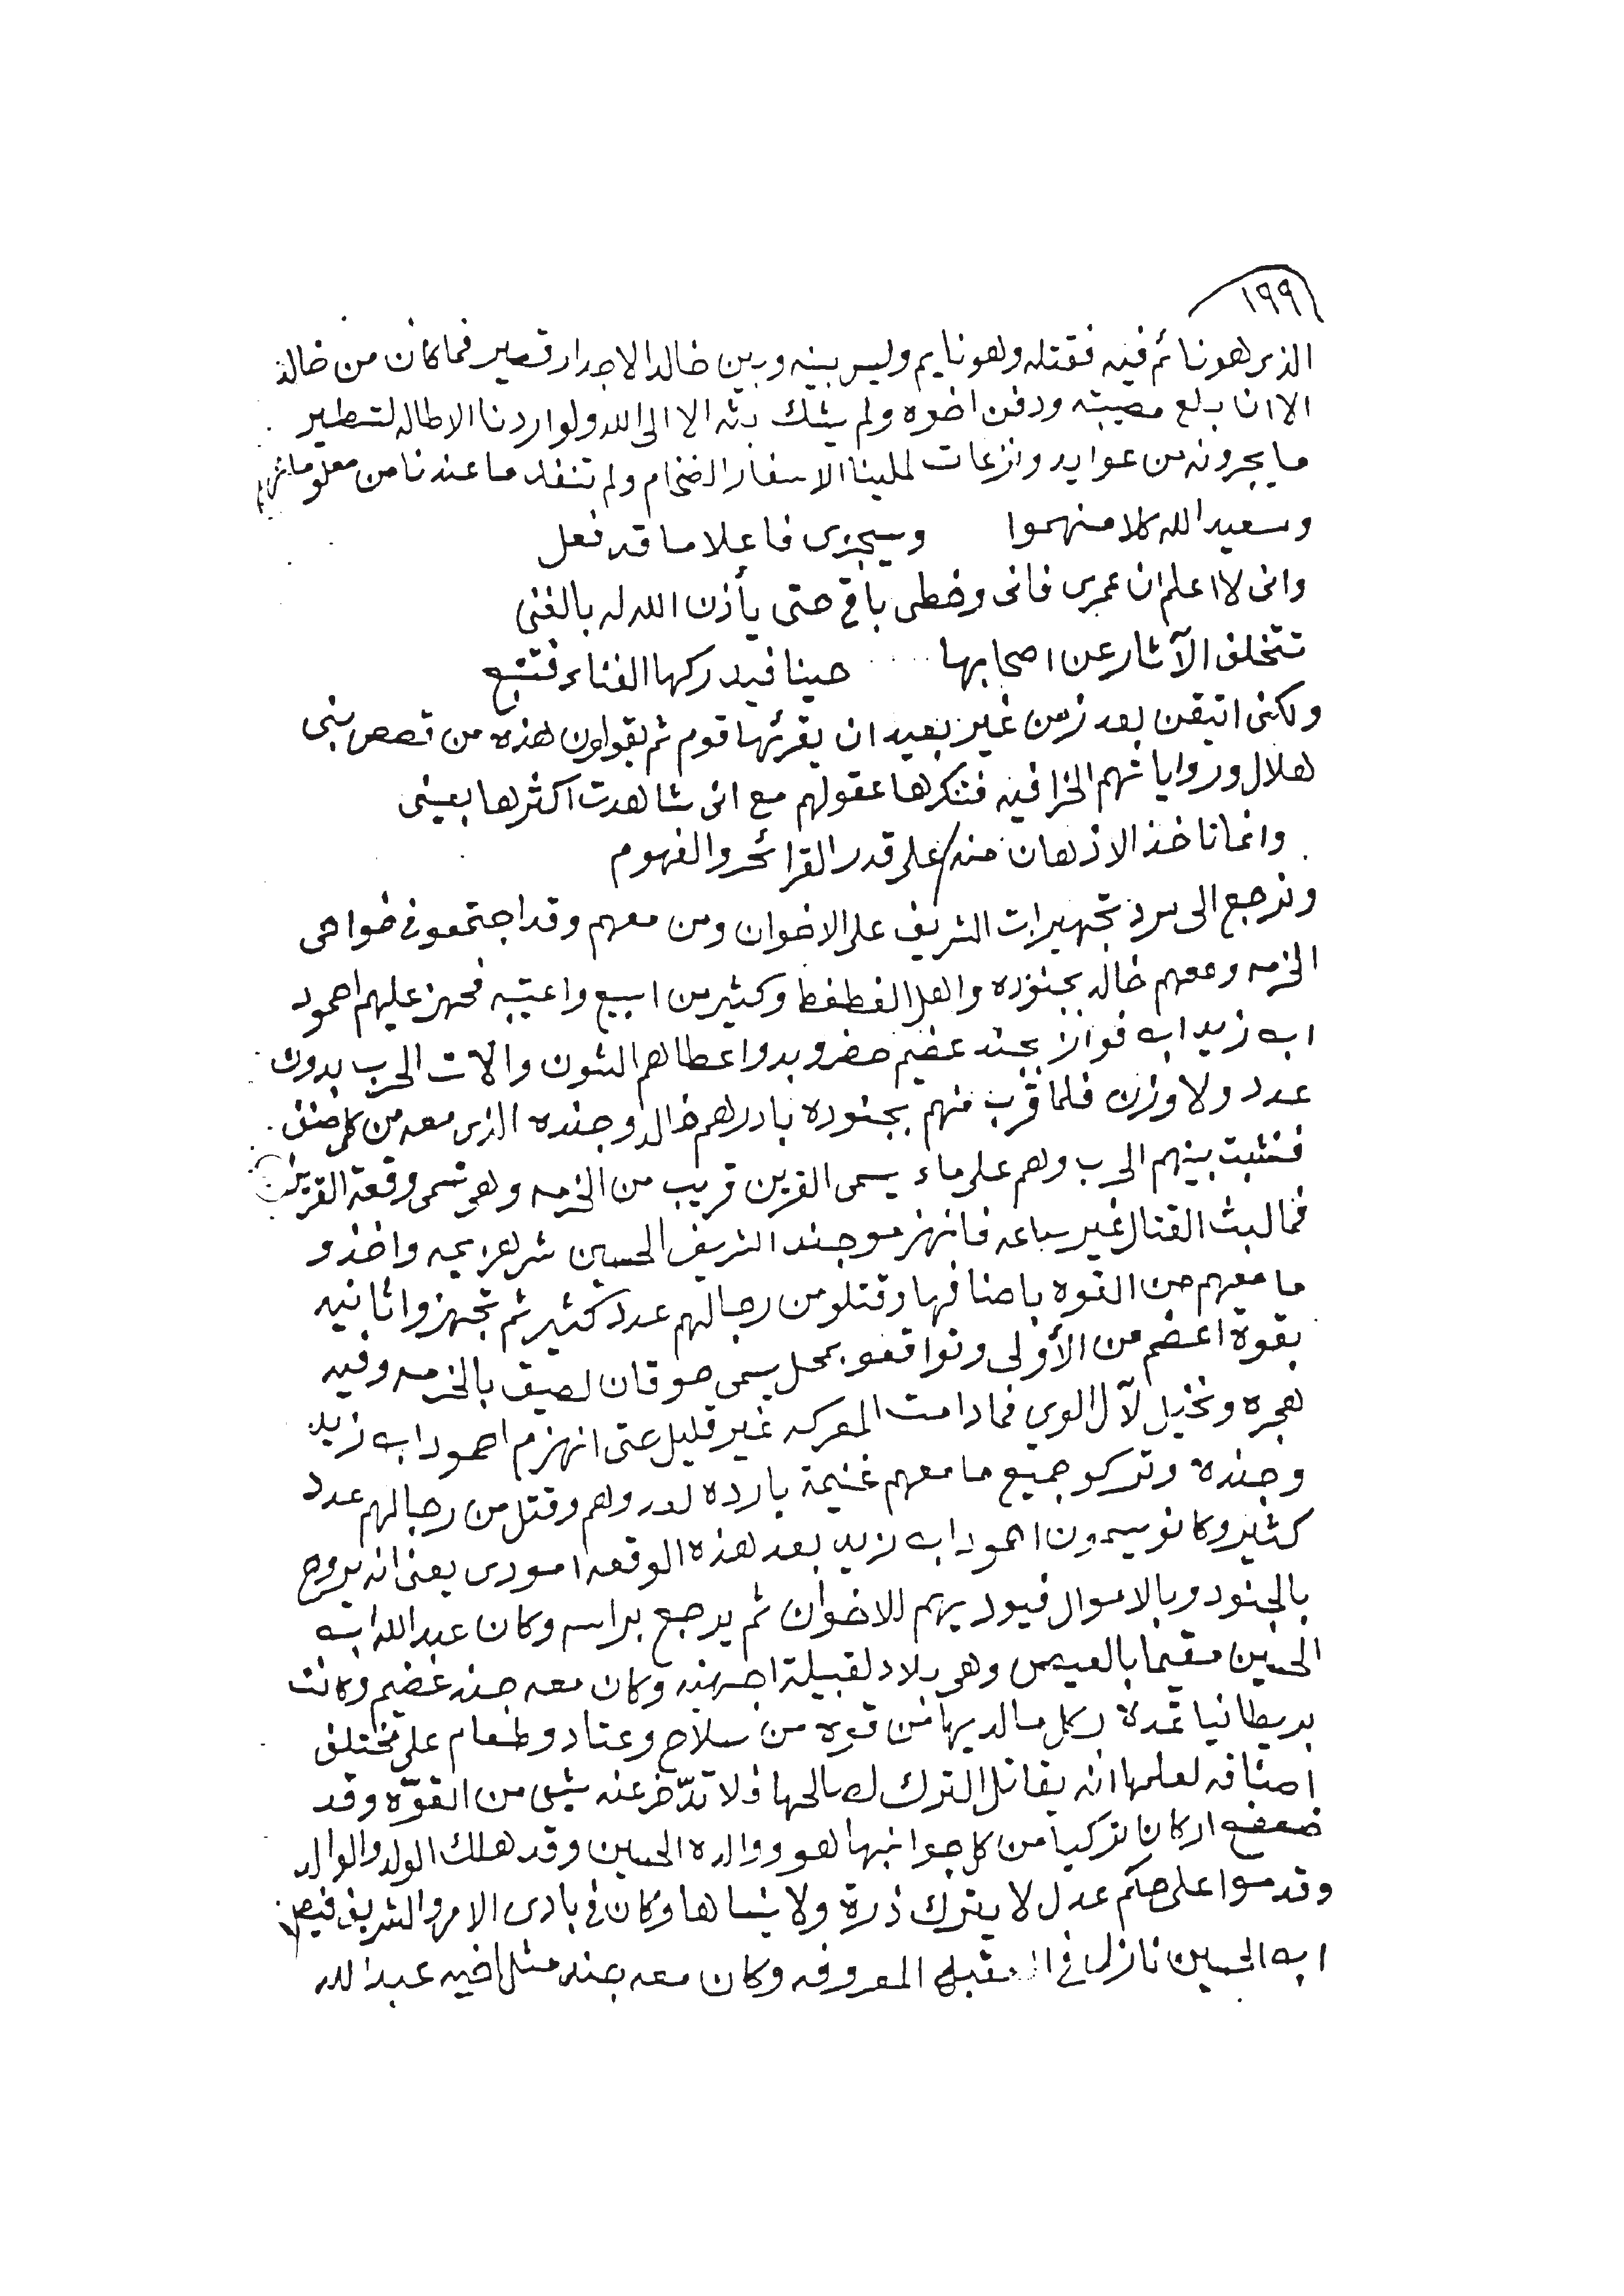 ١٩٩
الذي هو نائم فيه فقتله وهو نايم وليس بينه وبين خالد الاجدار قصير فما كان من خالد
الا ان بلع مصيبته ودفن اخوه ولم يشك بثه الا الى الله ولو اردنا الاطاله لتسطير
ما يجرونه من عوايد ونزعات لملينا الاسفار الضخام ولم تنفد ما عندنا من معلوماتهم
وسعيد الله كلا منهموا وسيجزى فاعلا ما قد فعل
وانى لا اعلم ان عمرى فانى وخطى باقي حتى يأذن الله له بالفنى
تتخلف الآثار عن اصحابها حينا فيدركها الفناء فتتبع
ولكنى اتيقن بعد زمن غير بعيد ان يقرئها قوم ثم يقولون هذه من قصص بنى
هلال وروايا تهم الخرافيه فتنكرها عقولهم مع انى شاهدت اكثرها بعينى
وانما تاخذ الاذهان منه على قدر القرائح والفهوم
ونرجع الى سرد تجهيزات الشريف على الاخوان ومن معهم وقد اجتمعو في ضواحى
الخرمه ومعهم خالد بجنوده واهل الغطغط وكثير من اسبيع واعتيبه فجهز عليهم احمود
ابن زيد ابن فواز بجند عضيم حضر وبدو اعطاهم الشون والات الحرب بدون
عدد ولا وزن فلما قرب منهم بجنوده بادرهم خالد وجنده الذى معه من كل صنف
فنشبت بينهم الحرب وهم على ماء يسمى القرين قريب من الخرمه وهى تسمى وقعة القرين
فما لبث القتال غير ساعه فانهزمو جند الشريف الحسين شر هزيمه واخذو
ما معهم من القوه باصنافها وقتلو من رجالهم عدد كثير ثم تجهزوا ثانيه
بقوة اعضم من الأولى وتواقعو بمحل يسمى حوقان لصيق بالخرمه وفيه
هجره ونخيل لآل الوي فما دامت المعركه غير قليل حتى انهزم احمود ابن زيد
وجنده وتركو جميع ما معهم غنيمة بارده لعدوهم وقتل من رجالهم عدد
كثير وكانو يسمون احمود ابن زيد بعد هذه الوقعه امودى يعنى انه يروح
بالجنود وبالاموال فيوديهم للاخوان ثم يرجع براسه وكان عبدالله ابن
الحسين مقيما بالعيص وهى بلاد لقبيلة اجهينه وكان معه جند عضيم وكانت
بريطانيا تمده بكل ما لديها من قوه من سلاح وعتاد وطعام على مختلف
اصنافه لعلمها انه يقاتل الترك لصالحها فلا تدّخر عنه شيئ من القوّه وقد
ضعضع اركان تركيا من كل جوانبها هو ووالده الحسين وقد هلك الولد والوالد
وقدموا على حكم عدل لا يترك ذرة ولا ينساها وكان في بادى الامر والشريف فيصل
ابن الحسين نازل في المعروفه وكان معه جند مثل اخيه عبدالله